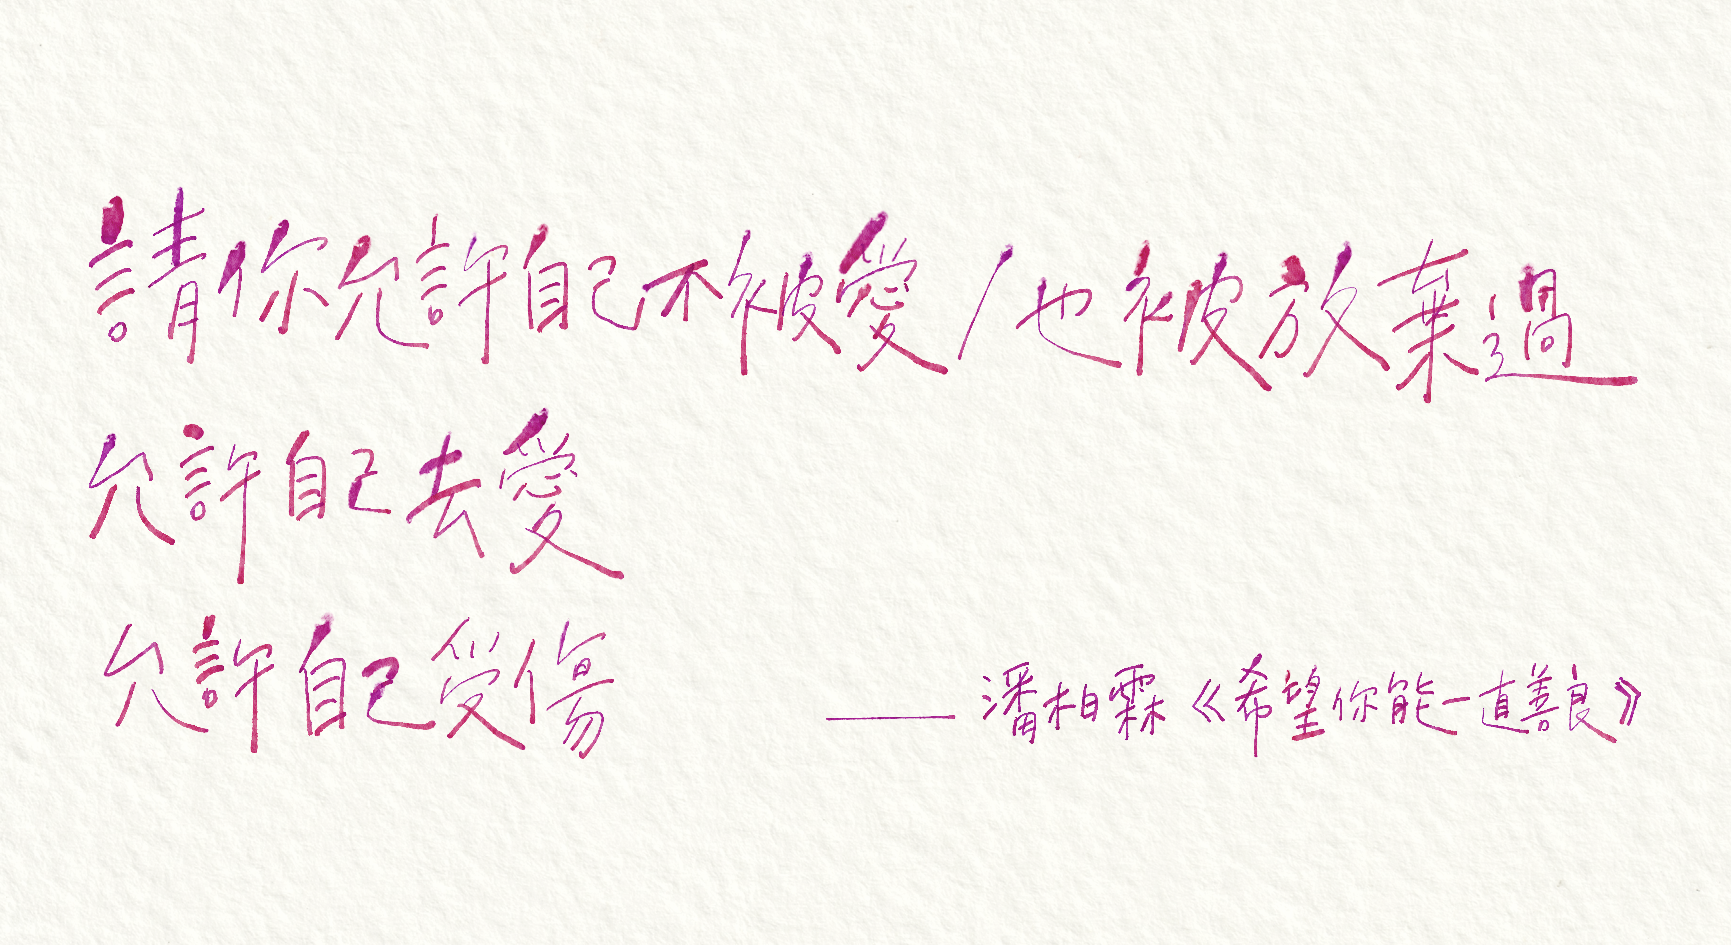 請你允許自己不被愛/也被放棄過
允許自己去愛
允許自己受傷
——潘柏霖《希望你能一直善良》